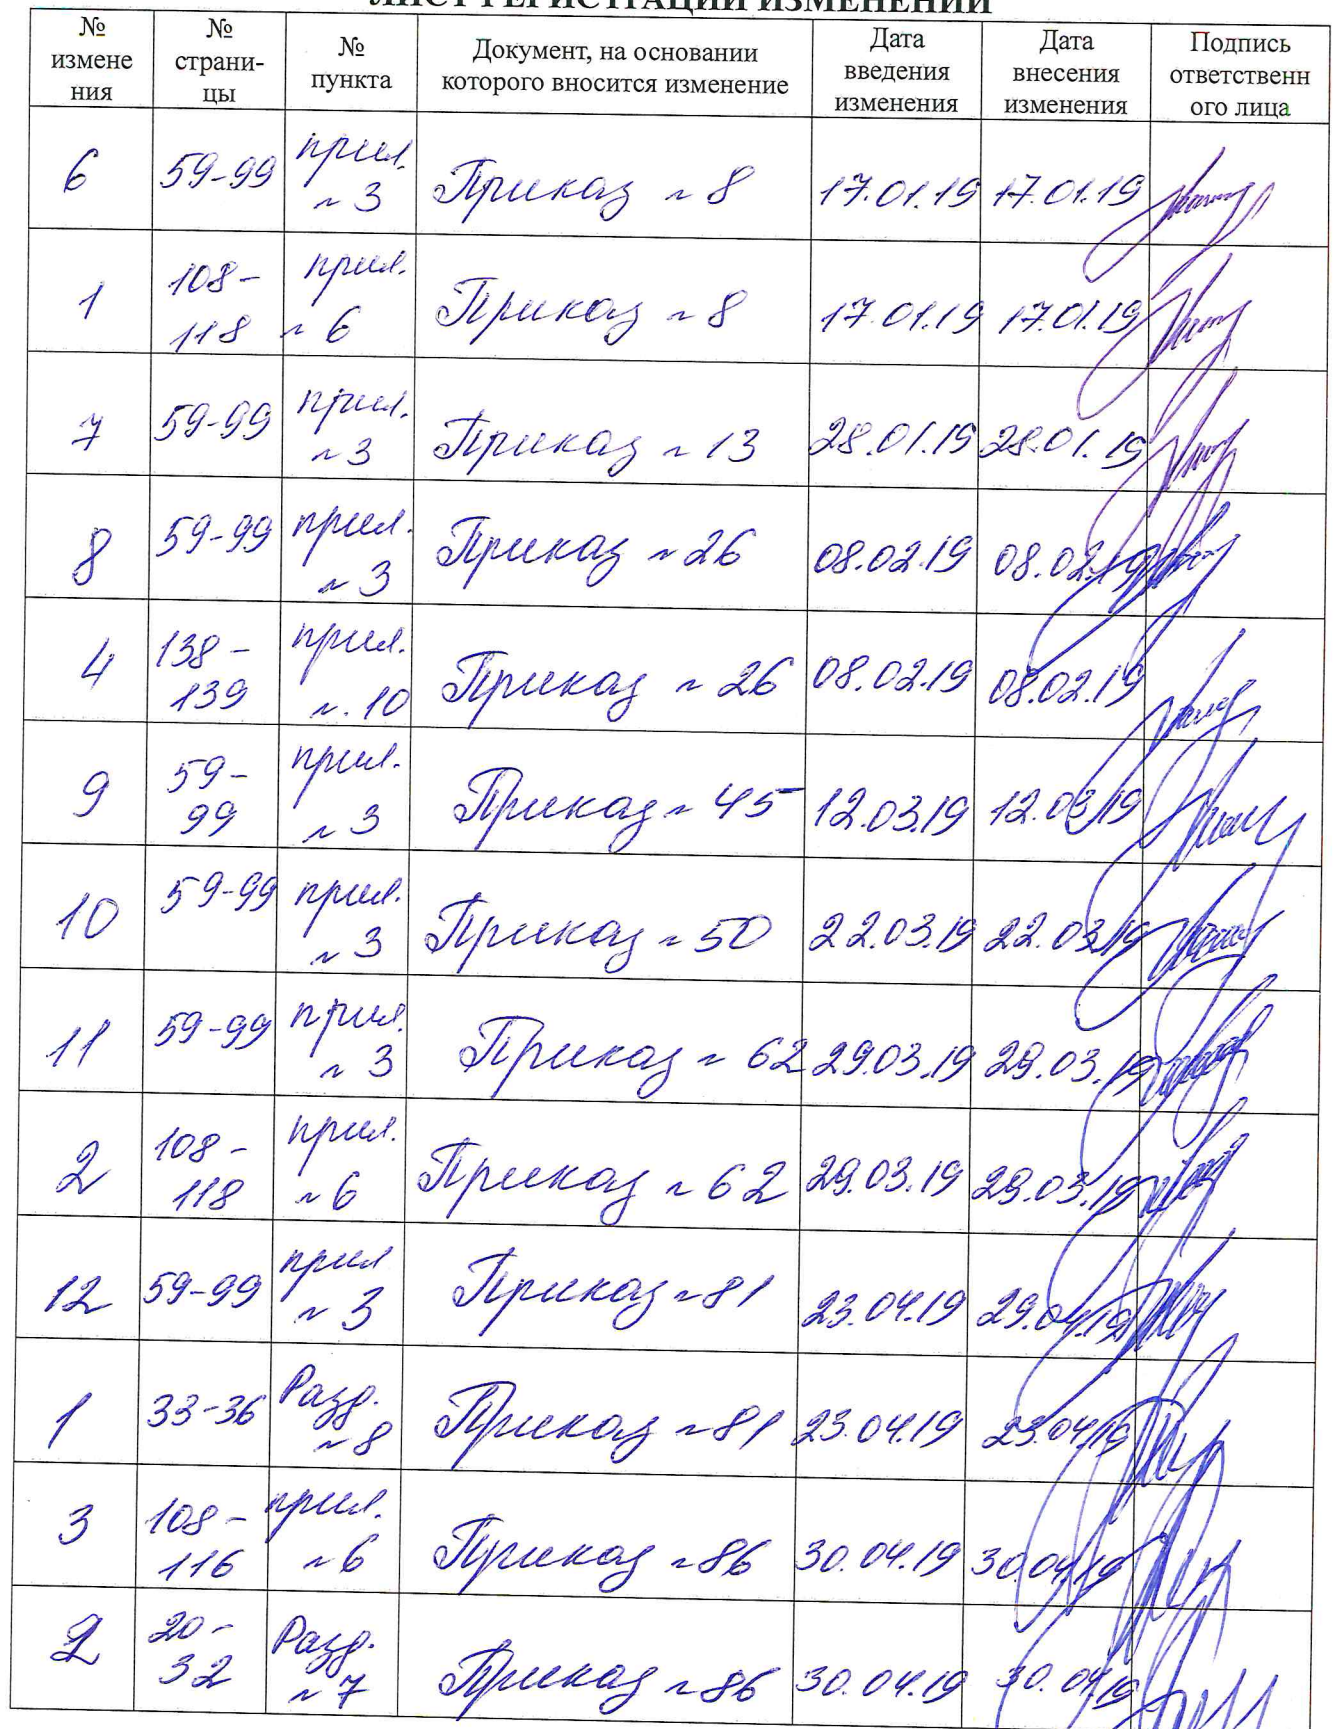 ЛИСТ РЕГИСТРАЦИИ ИЗМЕНЕНИЙ
№
измене
ния
№
страни-
цы
№
пункта
Документ, на основании
которого вносится изменение
Дата
введения
изменения
Дата
внесения
изменения
Подпись
ответственн
ого лица
6
59-99
прил.
№ 3
Приказ № 8
17.01.19
17.01.19
1
108-
118
прил.
№ 6
Приказ № 8
17.01.19
17.01.19
7
59-99
прил.
№ 3
Приказ № 13
28.01.19
28.01.19
8
59-99
прил.
№ 3
Приказ № 26
08.02.19
08.02.19
4
138-
139
прил.
№. 10
Приказ № 26
08.02.19
08.02.19
9
59-
99
прил.
№ 3
Приказ № 45
12.03.19
12.03.19
10
59-99
прил.
№ 3
Приказ № 50
22.03.19
22.03.19
11
59-99
прил.
№ 3
Приказ № 62
29.03.19
29.03.19
2
108-
118
прил.
№ 6
Приказ № 62
29.03.19
29.03.19
12
59-99
прил
№ 3
Приказ № 81
23.04.19
29.04.19
1
33-36
Разд.
№ 8
Приказ № 81
23.04.19
23.04.19
3
108-
116
прил.
№ 6
Приказ № 86
30.04.19
30.04.19
2
20-
32
Разд.
№ 7
Приказ № 86
30.04.19
30.04.19